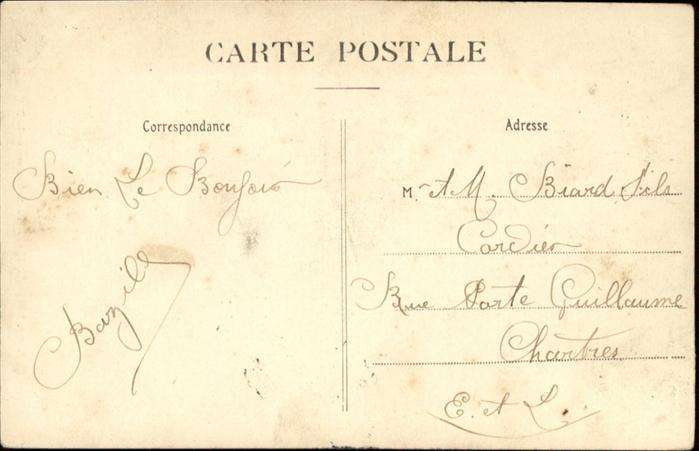 CARTE POSTALE
Correspondance
Adresse
Bien Le Bonjour
Bazile
M. et M. Biard Fils
Cordier
Rue Porte Guillaume
Chartres
E. et L.